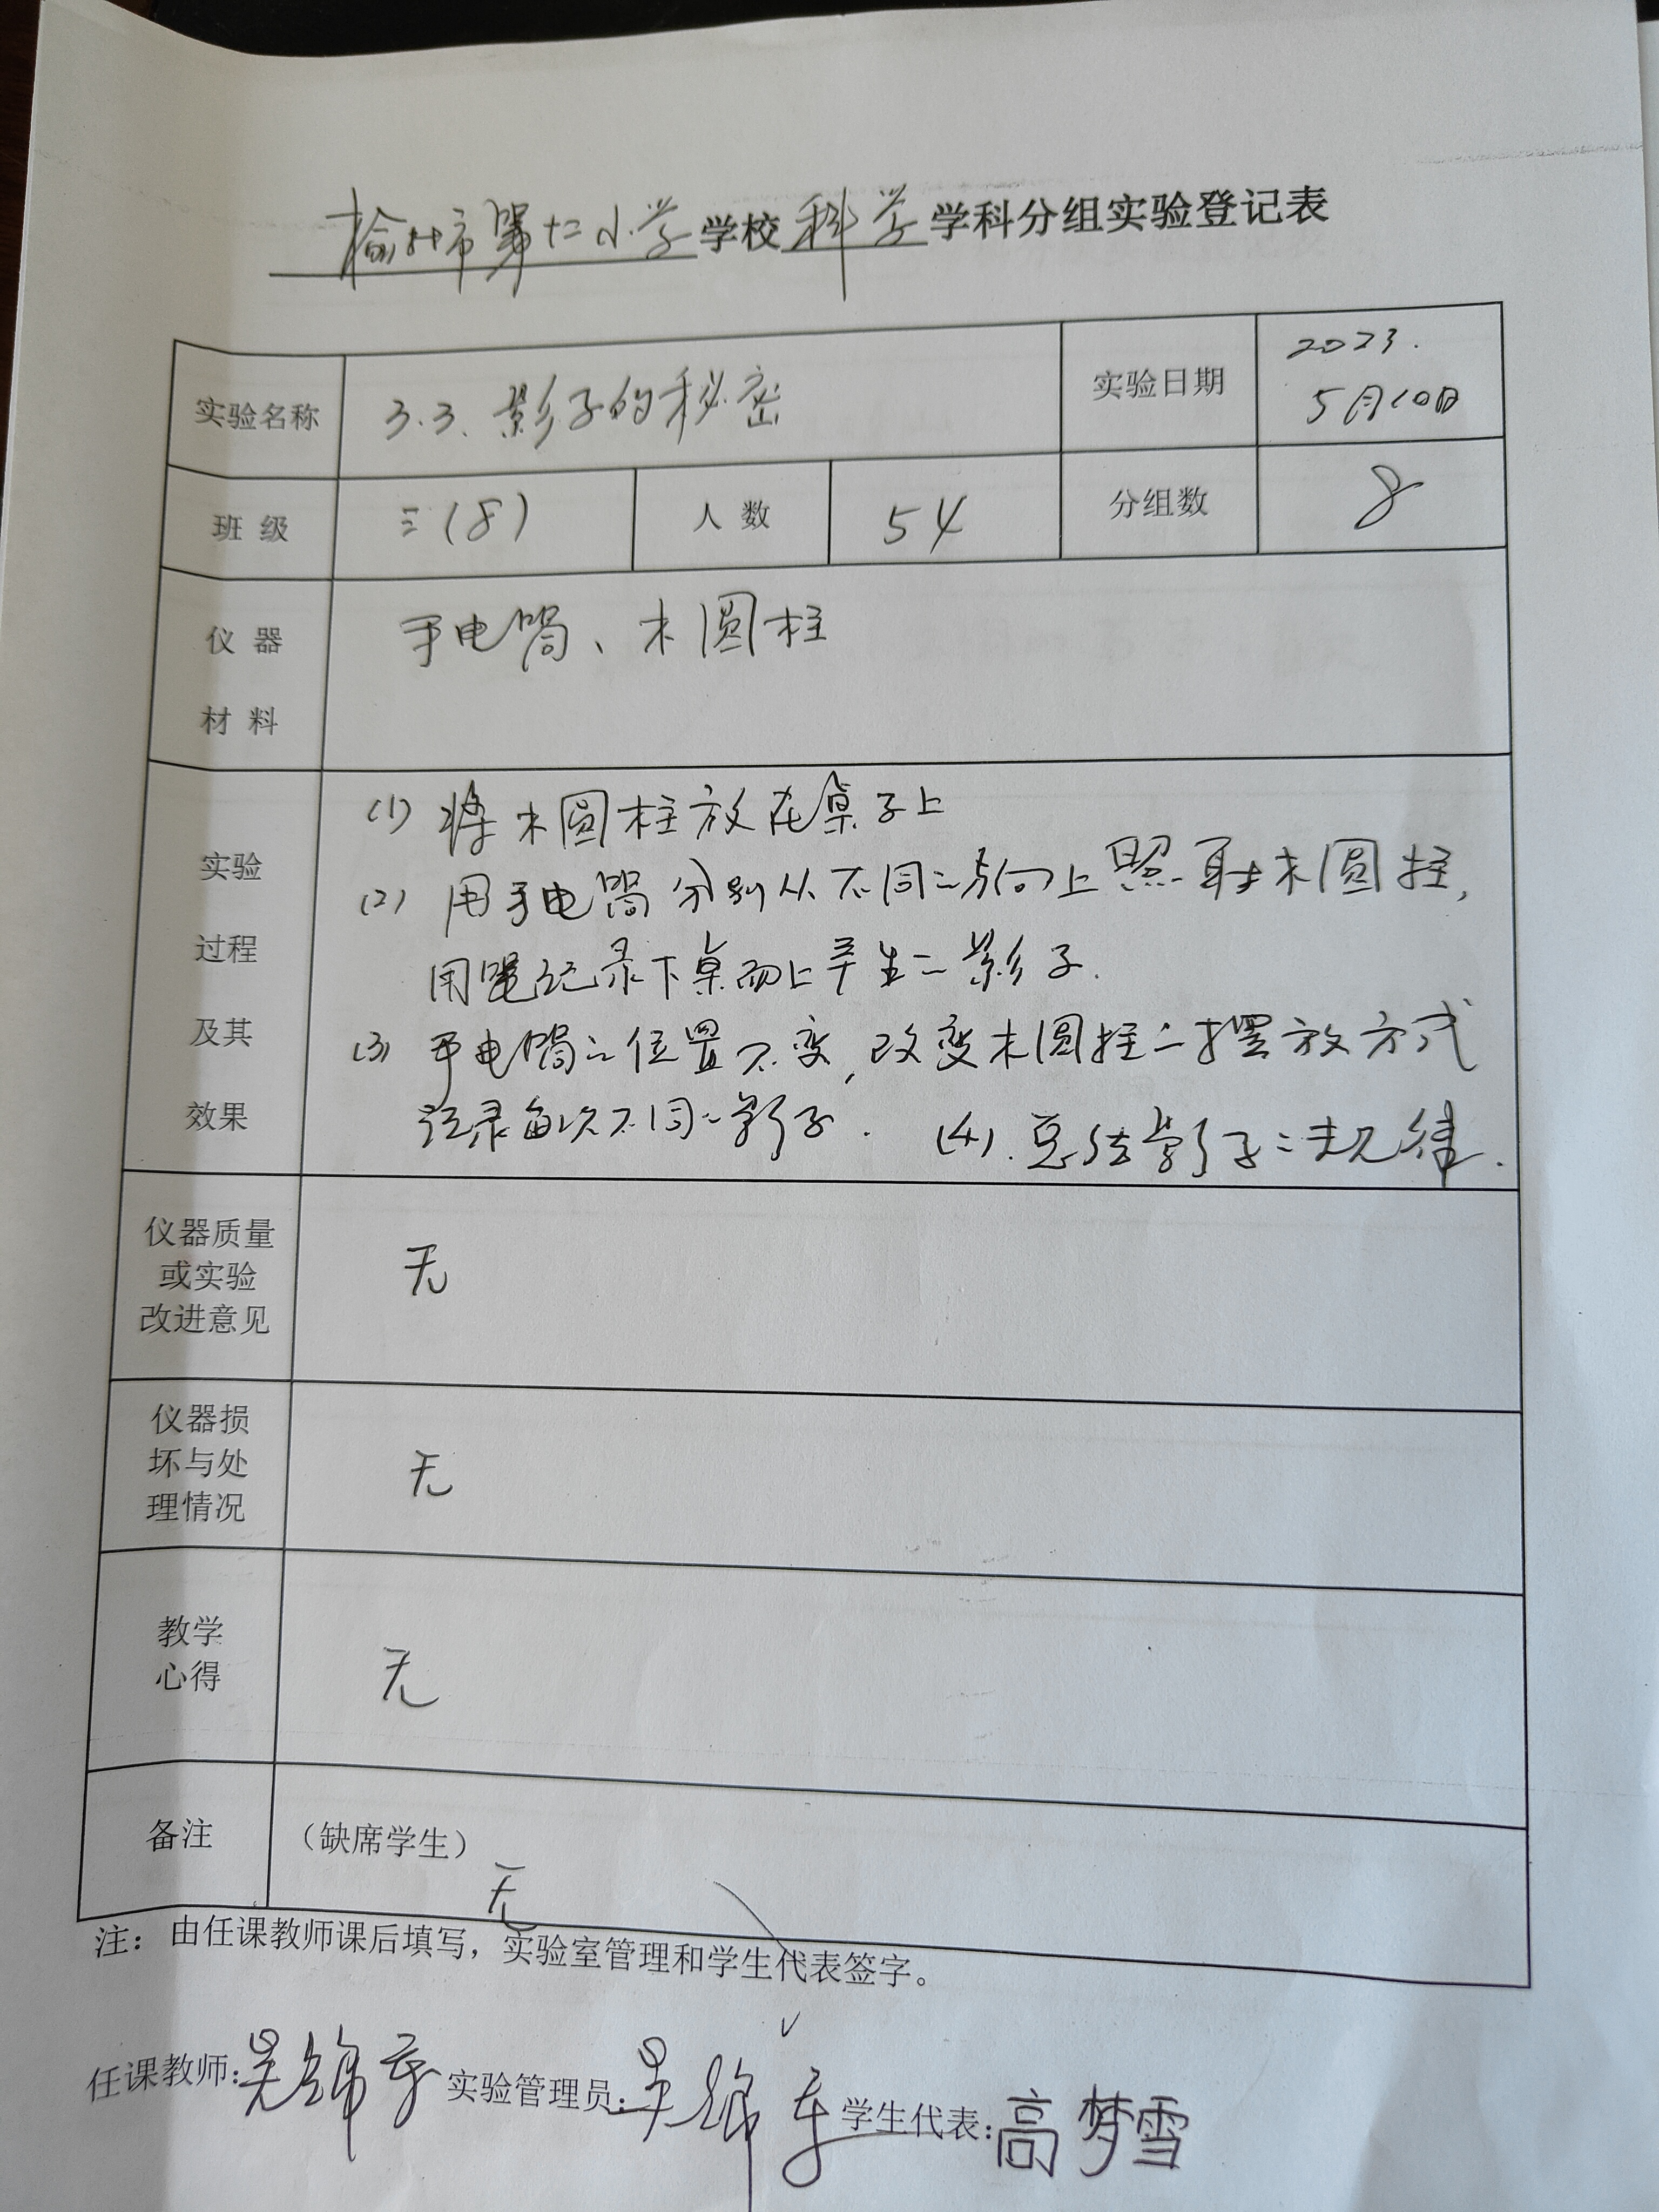 榆林市第十二小学学校科学学科分组实验登记表
实验名称 3.3、影子的秘密 实验日期 2023.
5月10日
班 级 三(8) 人 数 54 分组数 8
仪 器 手电筒、木圆柱
材 料
(1) 将木圆柱放在桌子上
实验 (2) 用手电筒分别从不同的方向上照射木圆柱,
过程 用笔记录下桌面上产生的影子.
及其 (3) 手电筒的位置不变,改变木圆柱的摆放方式
效果 记录每次不同的影子. (4).总结影子的规律.
仪器质量
或实验 无
改进意见
仪器损
坏与处 无
理情况
教学
心得 无
备注 (缺席学生)
无
注:由任课教师课后填写,实验室管理和学生代表签字。
任课教师:吴锦 实验管理员:吴锦 学生代表:高梦雪